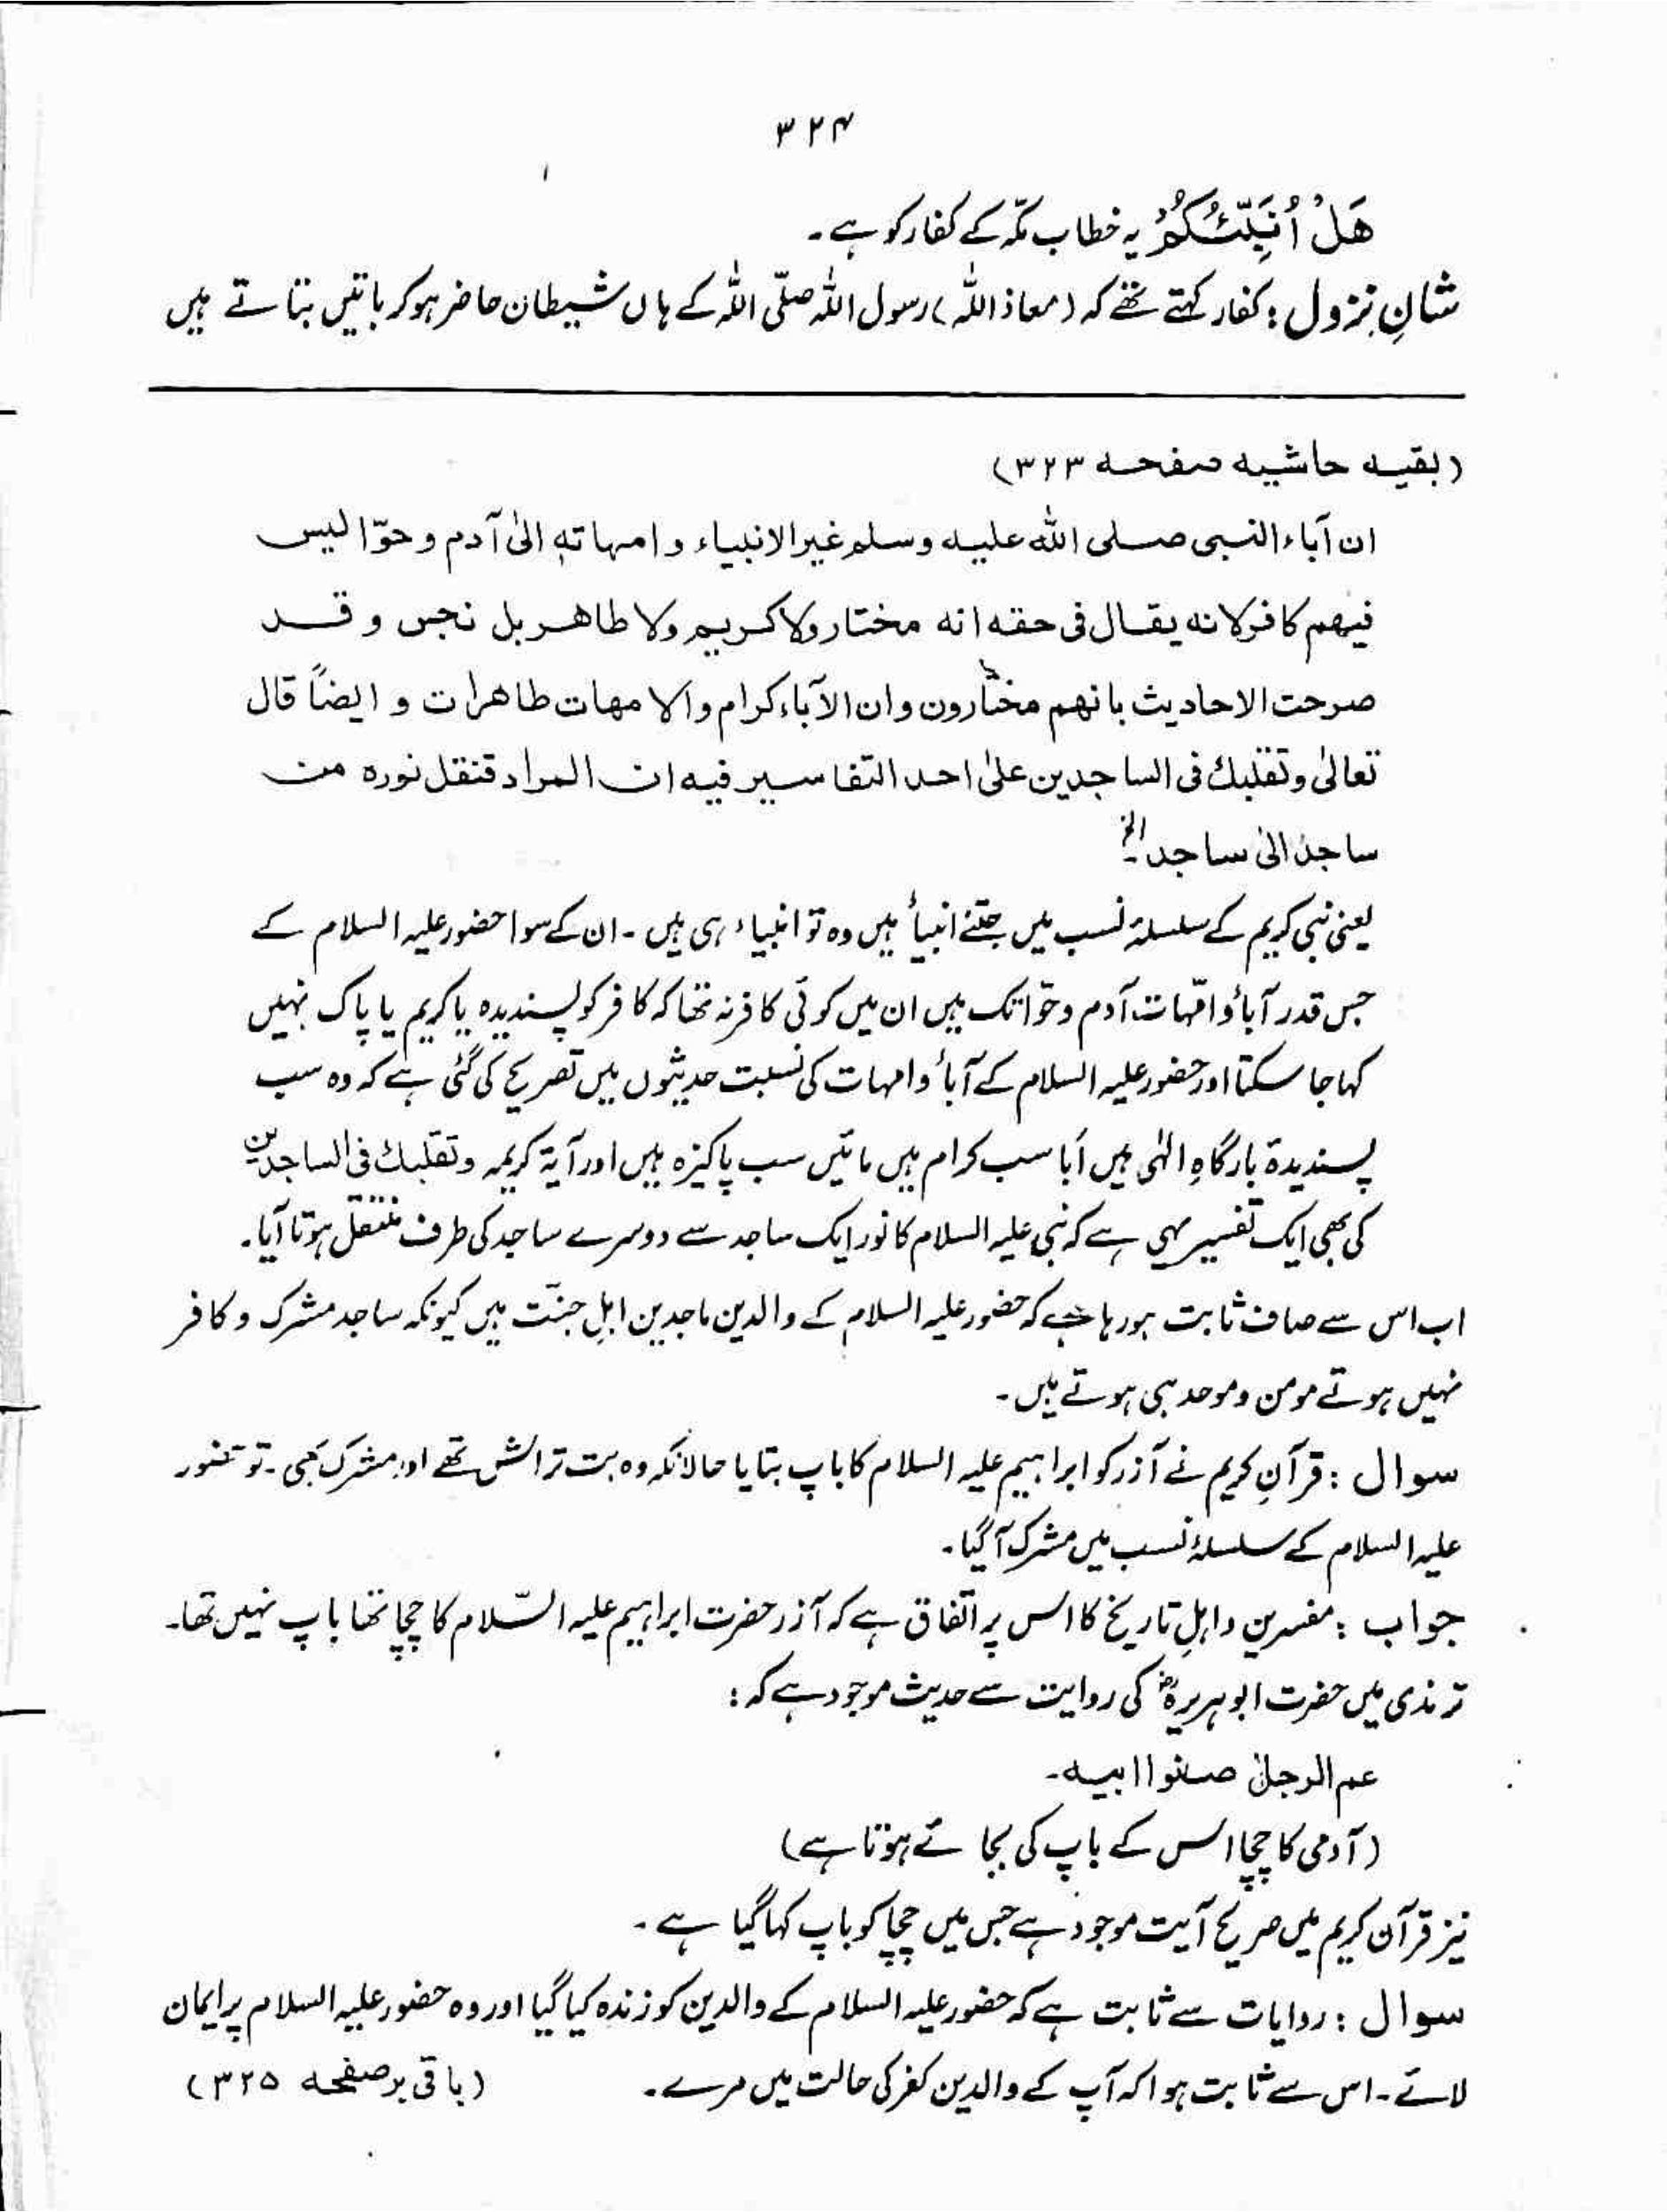 ۳۲۴
هَلْ اُنَبِّئُكُمْ یہ خطاب مکّہ کے کفار کو ہے۔
شانِ نزول : کفار کہتے تھے کہ (معاذ اللہ) رسول اللہ صلّی اللہ کے ہاں شیطان حاضر ہو کر باتیں بتاتے ہیں
(بقیہ حاشیہ صفحہ ۳۲۳)
ان آباء النبی صلی اللہ علیہ وسلم غیر الانبیاء و امہاتہٖ الیٰ آدم و حوّا لیس
فیھم کافر لانه یقال فی حقه انه مختار ولا کریم ولا طاھر بل نجس و قد
صرحت الاحادیث بانھم مختارون وان الآباء کرام والا مھات طاھرات و ایضاً قال
تعالیٰ وتقلبك فی الساجدین علیٰ احد التفاسیر فیه ان المراد قنقل نورہ من
ساجد الیٰ ساجد الخ۔
یعنی نبی کریم کے سلسلۂ نسب میں جتنے انبیأ ہیں وہ تو انبیاء ہی ہیں۔ ان کے سوا حضور علیہ السلام کے
جس قدر آبأ و امّہات آدم و حوّا تک ہیں ان میں کوئی کافر نہ تھا کہ کافر کو پسندیدہ یا کریم یا پاک نہیں
کہا جا سکتا اور حضور علیہ السلام کے آبأ و امہات کی نسبت حدیثوں میں تصریح کی گئی ہے کہ وہ سب
پسندیدۂ بارگاہِ الٰہی ہیں آبا سب کرام ہیں مائیں سب پاکیزہ ہیں اور آیۃ کریمہ وتقلبك فی الساجدین
کی بھی ایک تفسیر یہی ہے کہ نبی علیہ السلام کا نور ایک ساجد سے دوسرے ساجد کی طرف منتقل ہوتا آیا۔
اب اس سے صاف ثابت ہورہا ہے کہ حضور علیہ السلام کے والدین ماجدین اہلِ جنّت ہیں کیونکہ ساجد مشرک و کافر
نہیں ہوتے مومن و موحد ہی ہوتے ہیں۔
سوال : قرآنِ کریم نے آزر کو ابراہیم علیہ السلام کا باپ بتایا حالانکہ وہ بت تراش تھے اور مشرک بھی۔ تو حضور
علیہ السلام کے سلسلۂ نسب میں مشرک آگیا۔
جواب : مفسرین و اہلِ تاریخ کا اس پر اتفاق ہے کہ آزر حضرت ابراہیم علیہ السّلام کا چچا تھا باپ نہیں تھا۔
ترمذی میں حضرت ابوہریرہؓ کی روایت سے حدیث موجود ہے کہ :
عم الرجل صنوا ابیہ۔
(آدمی کا چچا اس کے باپ کی بجائے ہوتا ہے)
نیز قرآن کریم میں صریح آیت موجود ہے جس میں چچا کو باپ کہا گیا ہے۔
سوال : روایات سے ثابت ہے کہ حضور علیہ السلام کے والدین کو زندہ کیا گیا اور وہ حضور علیہ السلام پر ایمان
لائے۔ اس سے ثابت ہوا کہ آپ کے والدین کفر کی حالت میں مرے۔ (باقی برصفحہ ۳۲۵)